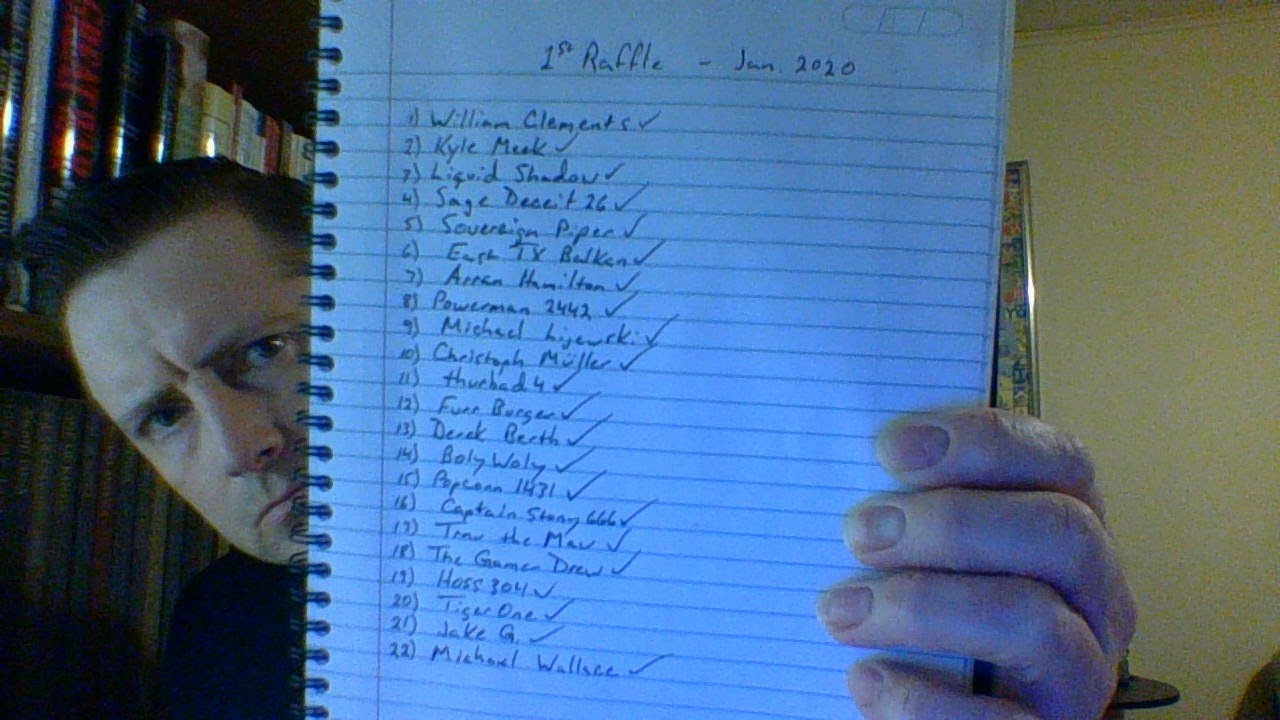 1st Raffle - Jan. 2020
1) William Clements ✓
2) Kyle Meek ✓
3) Liquid Shadow ✓
4) Sage Deceit 26 ✓
5) Sovereign Piper ✓
6) East TX Balkan ✓
7) Arran Hamilton ✓
8) Powerman 2442 ✓
9) Michael Lijewski ✓
10) Christoph Müller ✓
11) thurbad 4 ✓
12) Furr Burger ✓
13) Derek Berth ✓
14) BolyWoly ✓
15) Popcorn 1431 ✓
16) Captain Stony666 ✓
17) Trav the Mav ✓
18) The Gamer Drew ✓
19) Hoss 304 ✓
20) Tiger One ✓
21) Jake G. ✓
22) Michael Wallace ✓